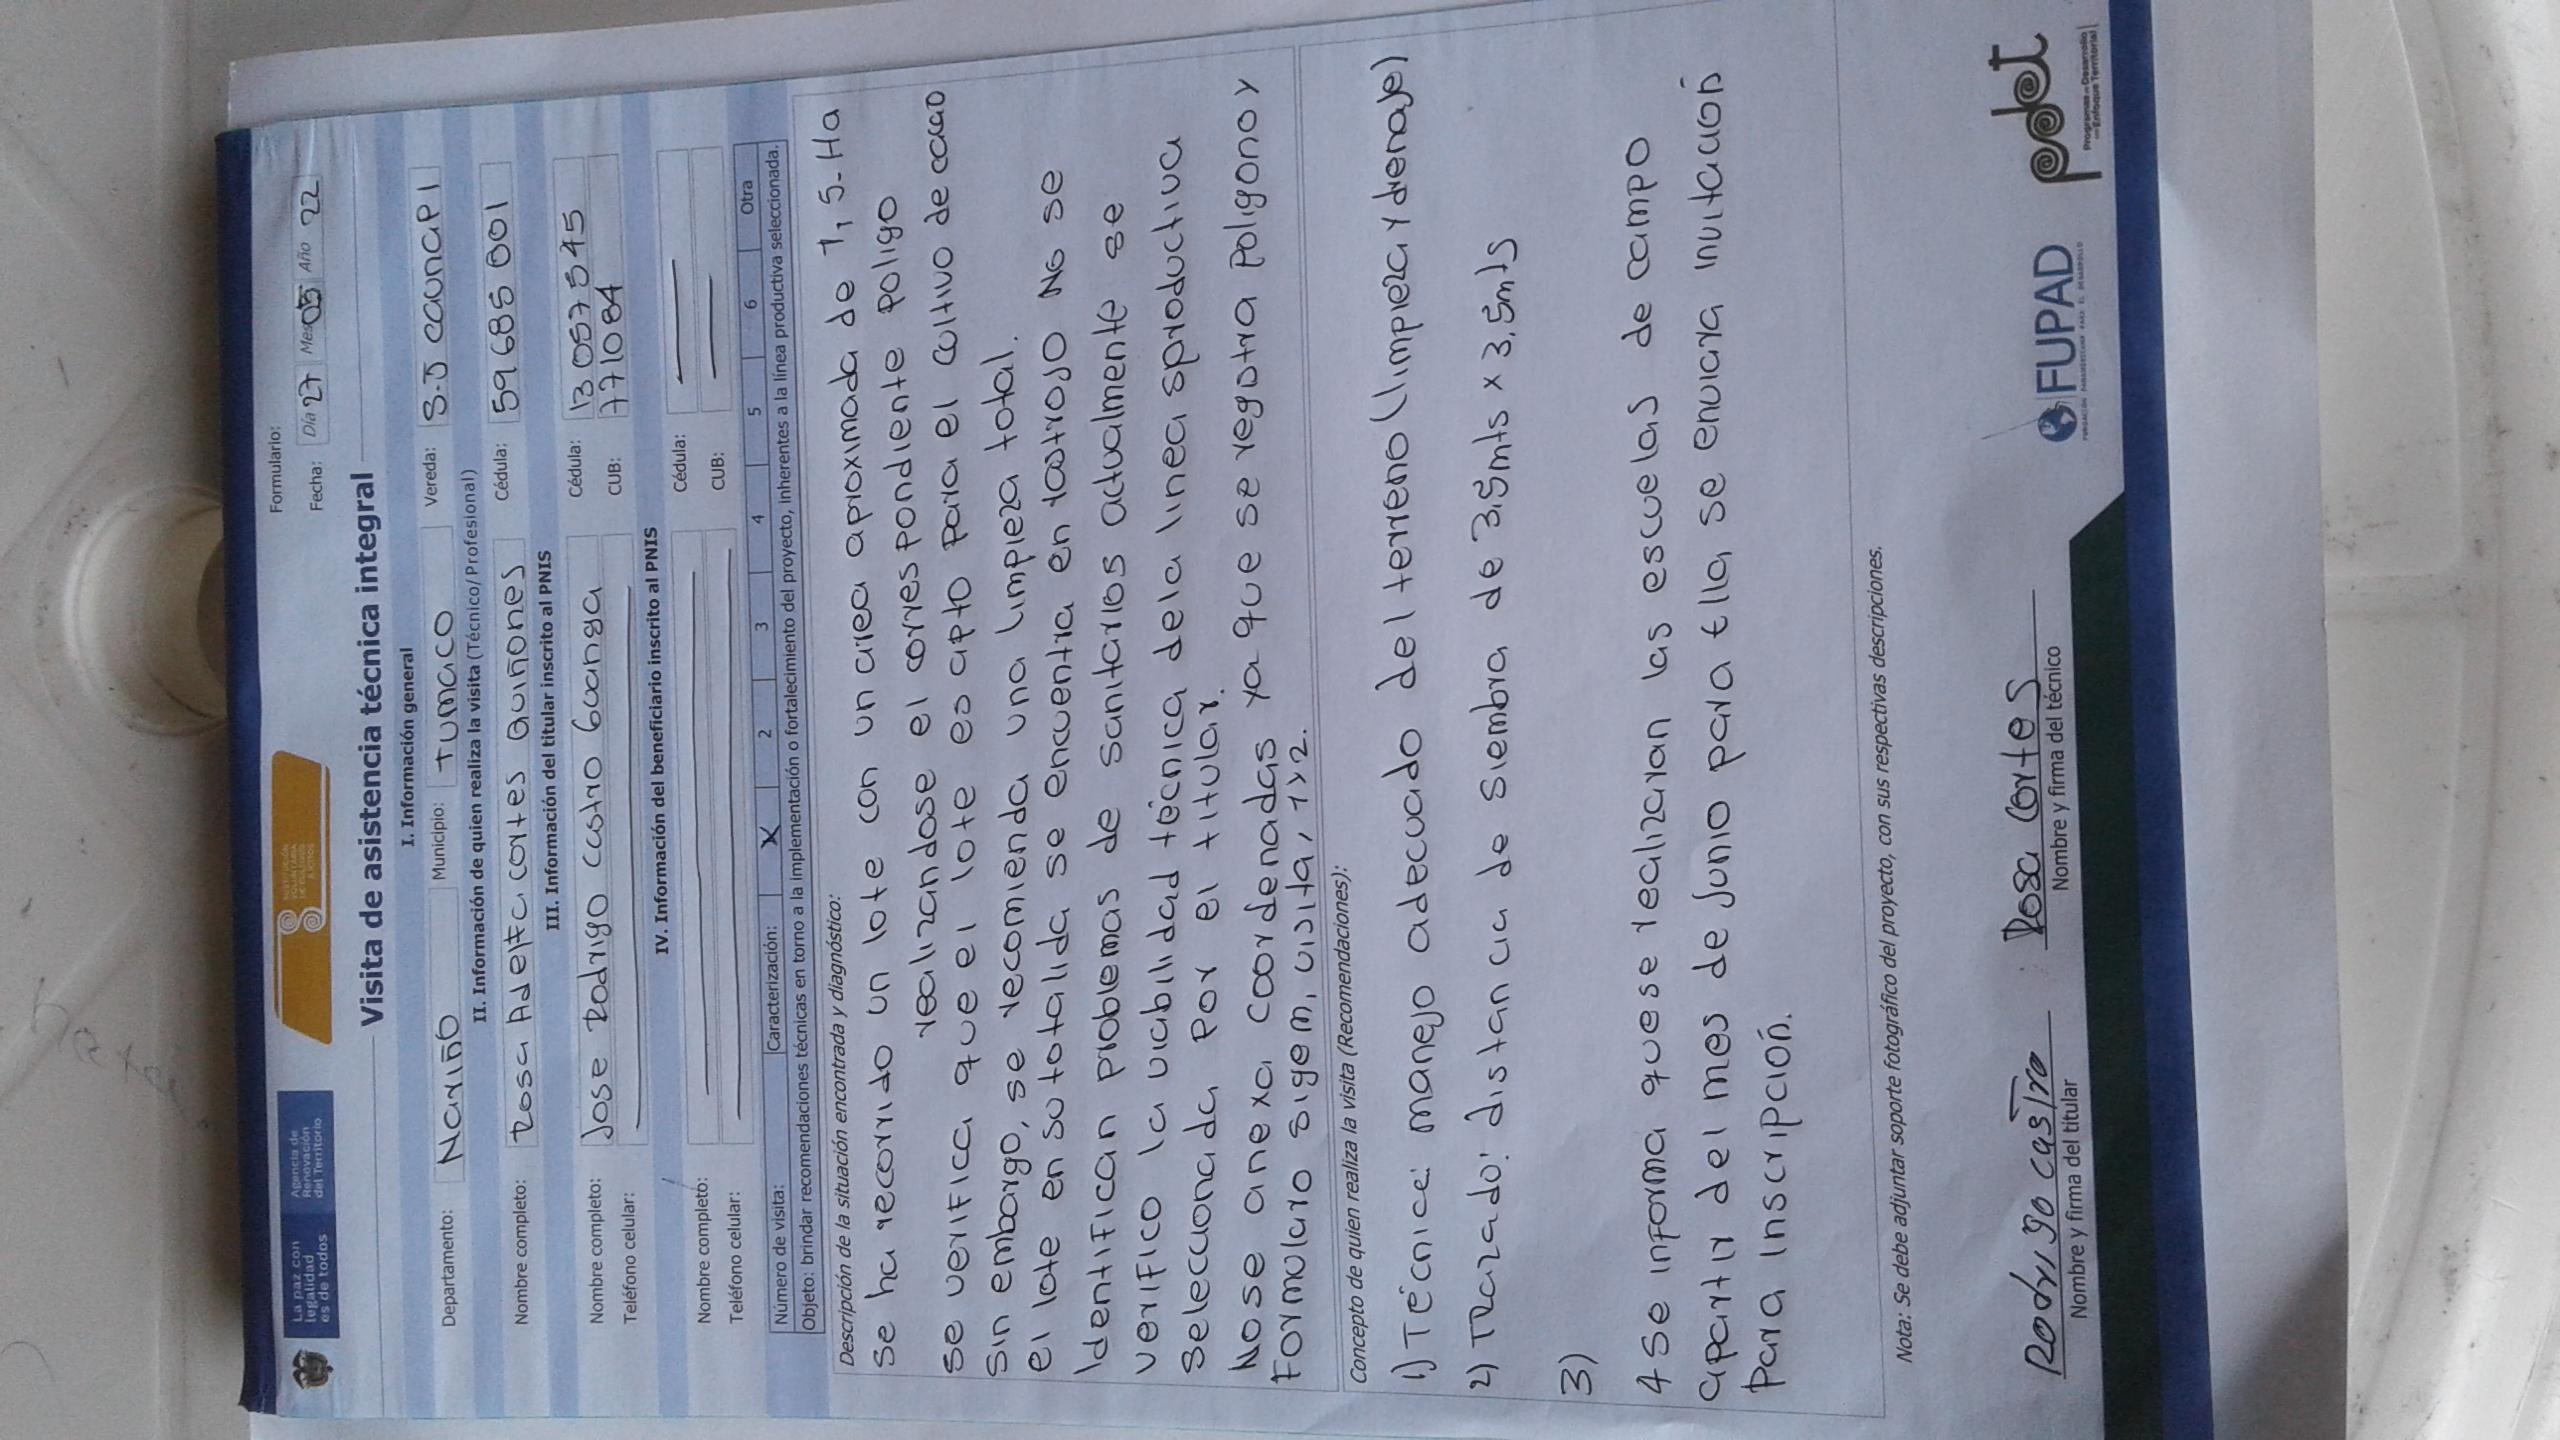 La paz con
legalidad
es de todos
Agencia de
Renovación
del Territorio
SUSTITUCIÓN
VOLUNTARIA
DE CULTIVOS
ILÍCITOS
Formulario:
Fecha: Día 27 Mes 05 Año 22
Visita de asistencia técnica integral
I. Información general
Departamento: Nariño Municipio: Tumaco Vereda: S.J caunapi
II. Información de quien realiza la visita (Técnico/Profesional)
Nombre completo: Rosa Adelfa cortes Quiñones Cédula: 59 685 001
III. Información del titular inscrito al PNIS
Nombre completo: Jose Rodrigo castro Guanga Cédula: 13 057 545
Teléfono celular: CUB: 771084
IV. Información del beneficiario inscrito al PNIS
Nombre completo: Cédula:
Teléfono celular: CUB:
Número de visita: Caracterización: X 2 3 4 5 6 Otra
Objeto: brindar recomendaciones técnicas en torno a la implementación o fortalecimiento del proyecto, inherentes a la línea productiva seleccionada.
Descripción de la situación encontrada y diagnóstico:
se ha recorrido un lote con un area aproximada de 1,5-Ha
realizandose el correspondiente poligo
se verifica que el lote es apto para el cultivo de cacao
sin embargo, se recomienda una limpieza total.
el lote en su totalida se encuentra en rastrojo No se
Identifican problemas de sanitarios actualmente se
verifico la viabilidad técnica de la linea sproductiva
seleccionada por el titular.
No se anexa coordenadas ya que se registra poligono y
Formulario sigem, visita, 1 y 2.
Concepto de quien realiza la visita (Recomendaciones):
1) Técnica: manejo adecuado del terreno (limpieza y drenaje)
2) TRazado: distancia de siembra de 3,5mts x 3,5mts
3)
4 se informa que se realizaran las escuelas de campo
apartir del mes de Junio para ella se enviara invitación
para inscripción.
Nota: Se debe adjuntar soporte fotográfico del proyecto, con sus respectivas descripciones.
Rodrigo castro Rosa Cortes
Nombre y firma del titular Nombre y firma del técnico
FUPAD
FUNDACIÓN PANAMERICANA PARA EL DESARROLLO
pdet
Programas de Desarrollo
con Enfoque Territorial